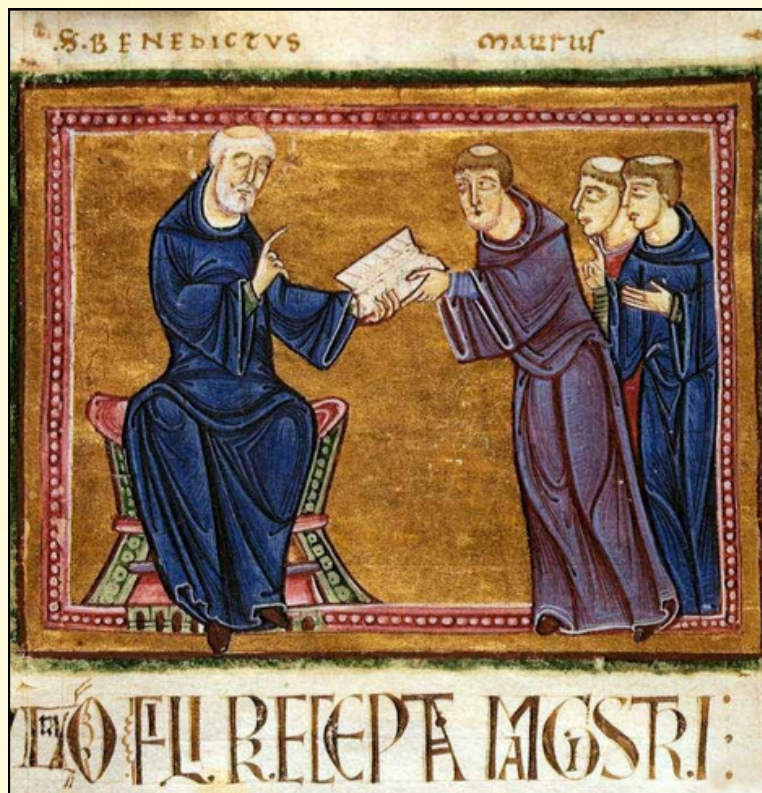 .S. BENEDICTVS maurus
O FILI PRECEPTA MAGISTRI: